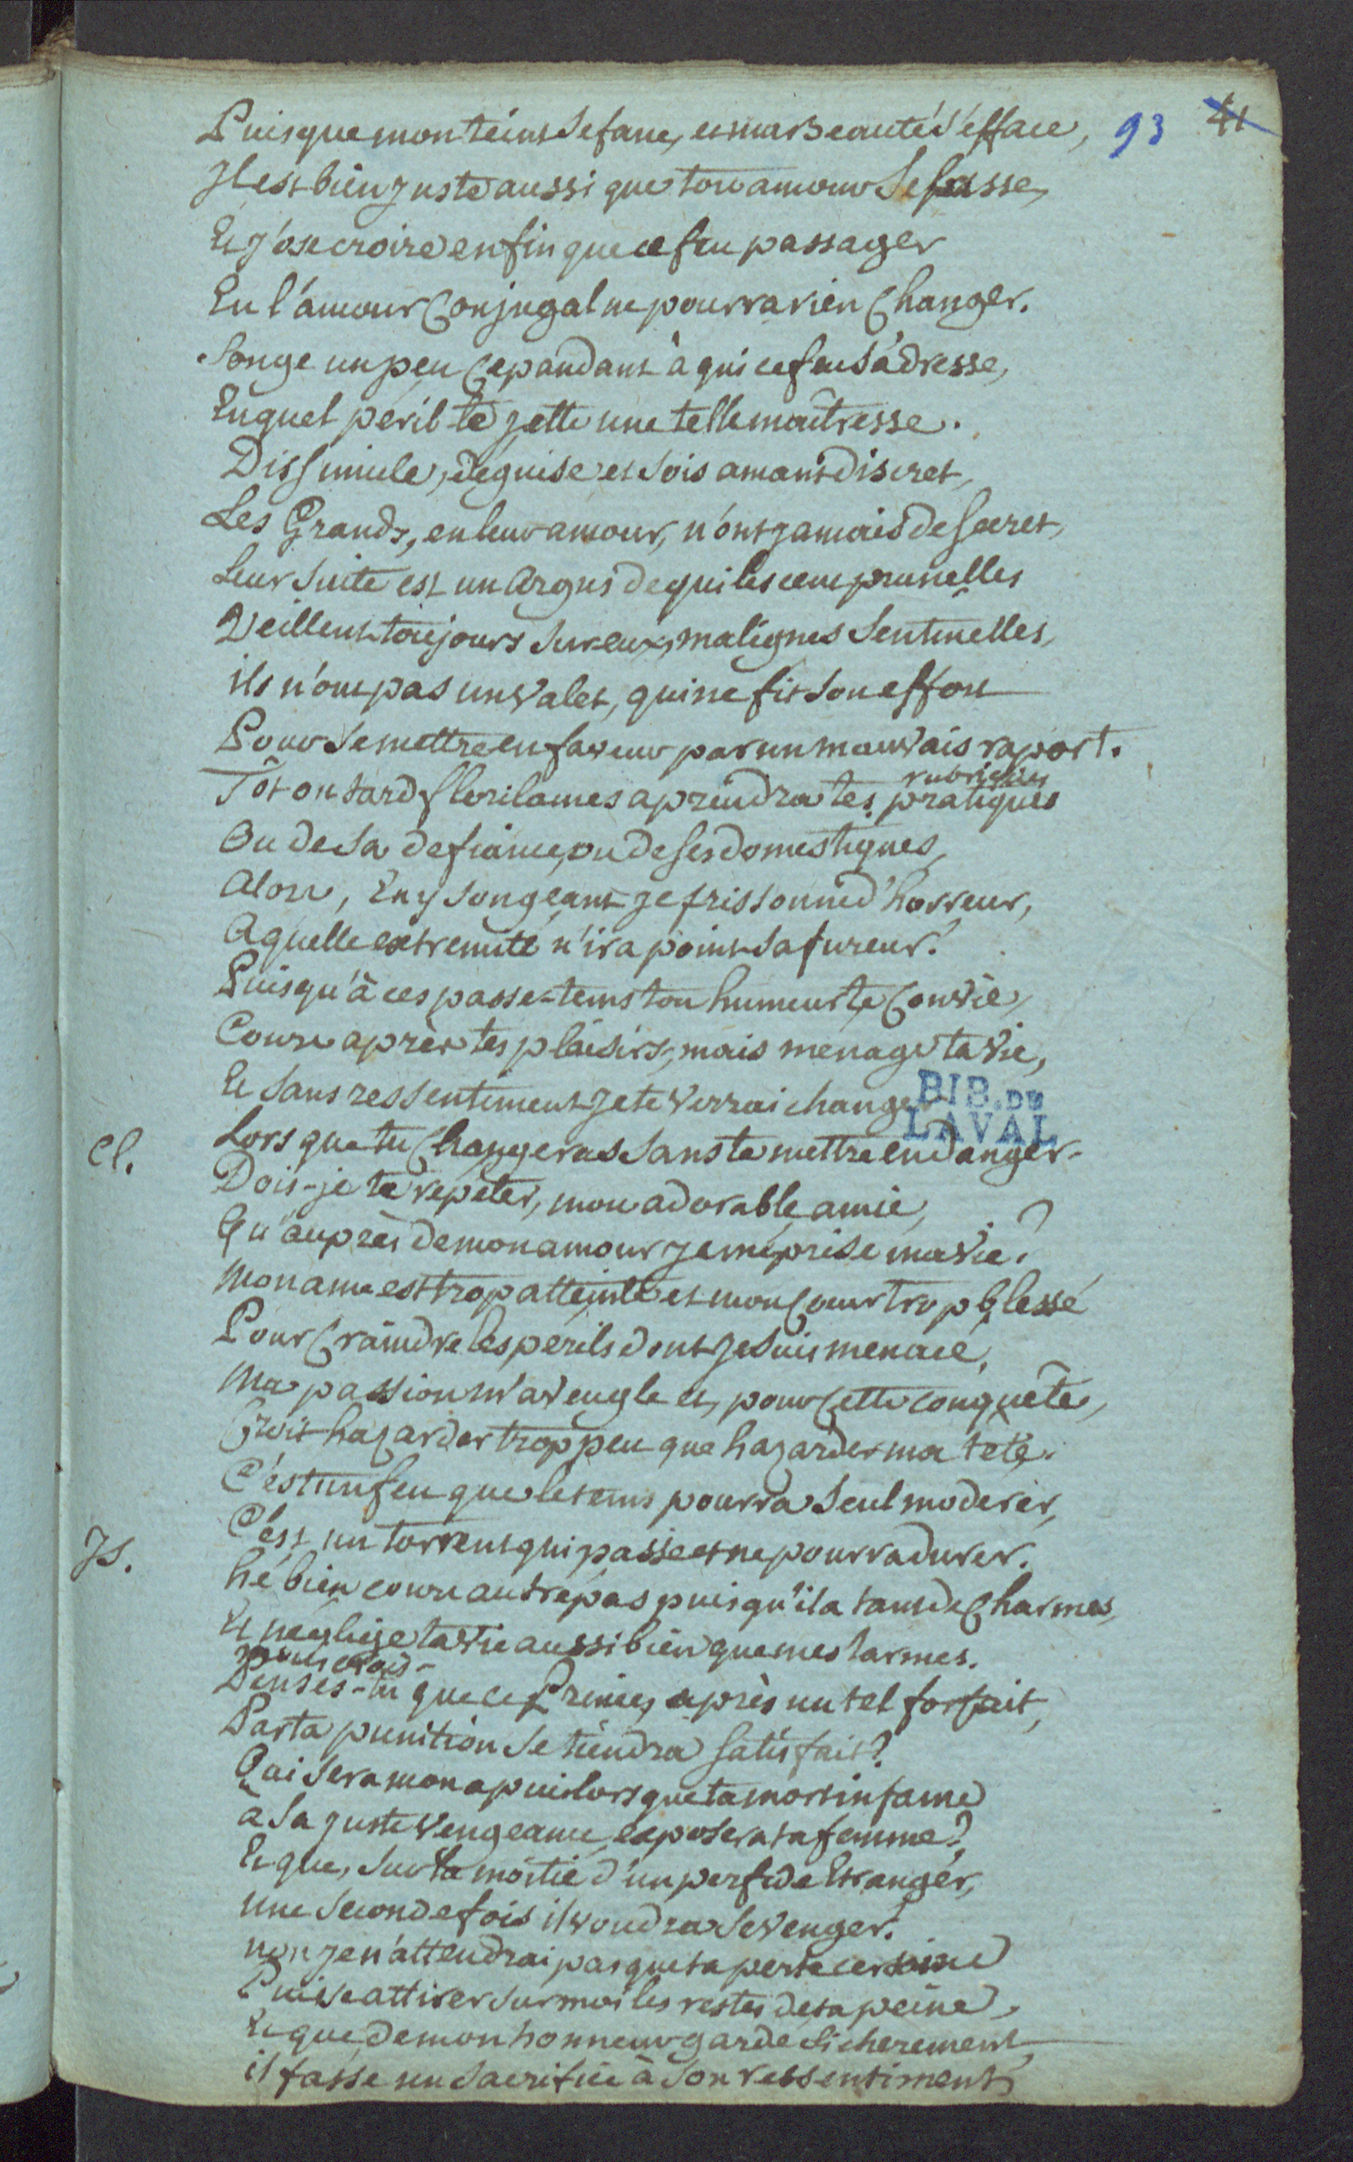 93 41
Puisque mon teint se fane, et ma Beauté s'éfface,
Il est bien juste aussi que ton amour se passe,
Et j'ose croire enfin que ce feu passager
En l'amour Conjugal ne pourra rien Changer.
Songe un peu Cepandant à qui ce feu s'adresse,
En quel péril te jette une telle maîtresse.
Dissimule, déguise et sois amant discret,
Les Grands, en leur amour, n'ont jamais de secret,
Leur suite est un Argus de qui les cent prunelles
Veillent toujours sur eux, malignes sentinelles,
ils n'ont pas un valet, qui ne fit son effort
Pour se mettre en faveur par un mauvais raport.
rubriques
Tôt ou tard Florilames aprendra tes pratiques
Ou de sa défiance, ou de ses domestiques,
Alors, En y songeant je frissonne d'horreur,
A quelle extremité n'ira point sa fureur?
Puisqu'à ces passe-tems ton humeur te Convie,
Cours après tes plaisirs, mais menage ta vie,
Et sans ressentiment je te verrai changer
BIB. DE LAVAL
Lors que tu Changeras sans te mettre en danger.
Cl.
Dois-je te repeter, mon adorable amie,
Qu'auprès de mon amour je meprise ma vie?
Mon ame est trop atteinte et mon Coeur trop blessé
Pour Craindre les perils dont je suis menacé,
Ma passion m'aveugle et, pour Cette conquête,
Croit hazarder trop peu que hazarder ma tête.
C'est un feu que le tems pourra seul moderer,
C'est un torrent qui passe et ne pourra durer.
Is.
Hé bien cours au trépas puisqu'il a tant de Charmes,
Et neglige ta vie aussi bien que mes larmes.
crois-
Penses-tu que ce Prince, après un tel forfait,
Par ta punition se tiendra satisfait?
Qui sera mon apui lorsque ta mort infame
a sa juste vengeance exposera ta femme?
Et que, sur la moitié d'un perfide Etranger,
une seconde fois il voudra se venger?
non je n'attendrai pas que ta perte certaine
Puisse attirer sur moi les restes de ta peine,
Et que de mon honneur gardé si cherement
il fasse un sacrifice à son ressentiment